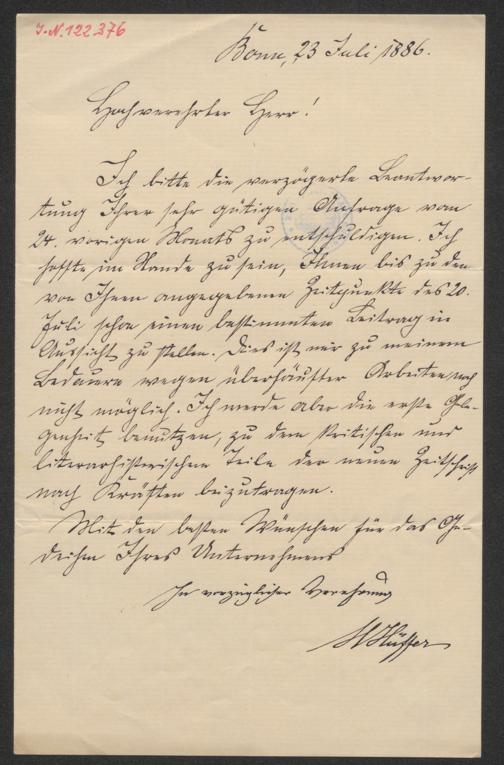 J.N. 122.376
Bonn, 23 Juli 1886.
Hochverehrter Herr!
Ich bitte die verzögerte Beantwor-
tung Ihrer sehr gütigen Anfrage vom
24. vorigen Monats zu entschuldigen. Ich
hoffte im Stande zu sein, Ihnen bis zu dem
von Ihnen angegebenen Zeitpunkte des 20.
Juli schon einen bestimmten Beitrag in
Aussicht zu stellen. Dies ist mir zu meinem
Bedauern wegen überhäufter Arbeiten noch
nicht möglich. Ich werde aber die erste Gele-
genheit benutzen, zu dem kritischen und
literarhistorischen Teile der neuen Zeitschrift
nach Kräften beizutragen.
Mit den besten Wünschen für das Ge-
deihen Ihres Unternehmens
In vorzüglicher Verehrung
HHüffer